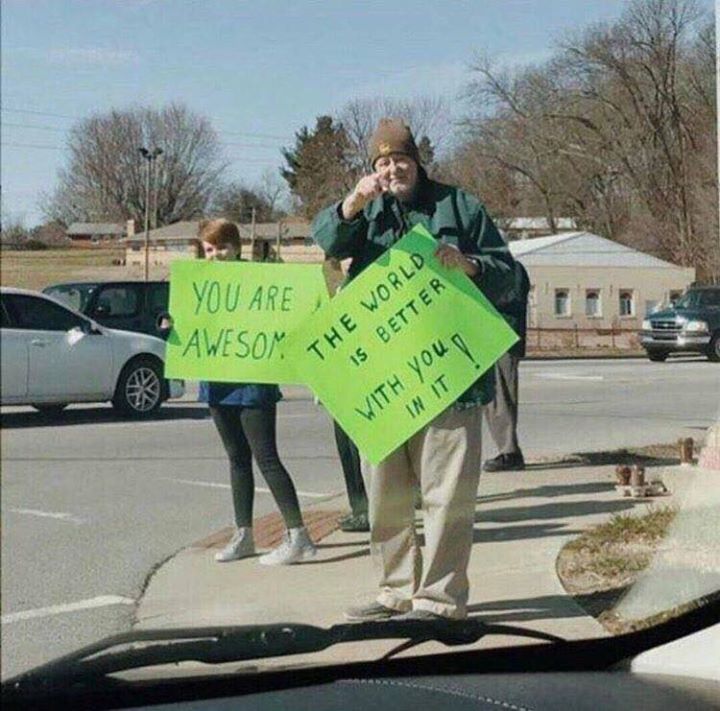 YOU ARE
AWESOM
THE WORLD
IS BETTER
WITH YOU
IN IT !